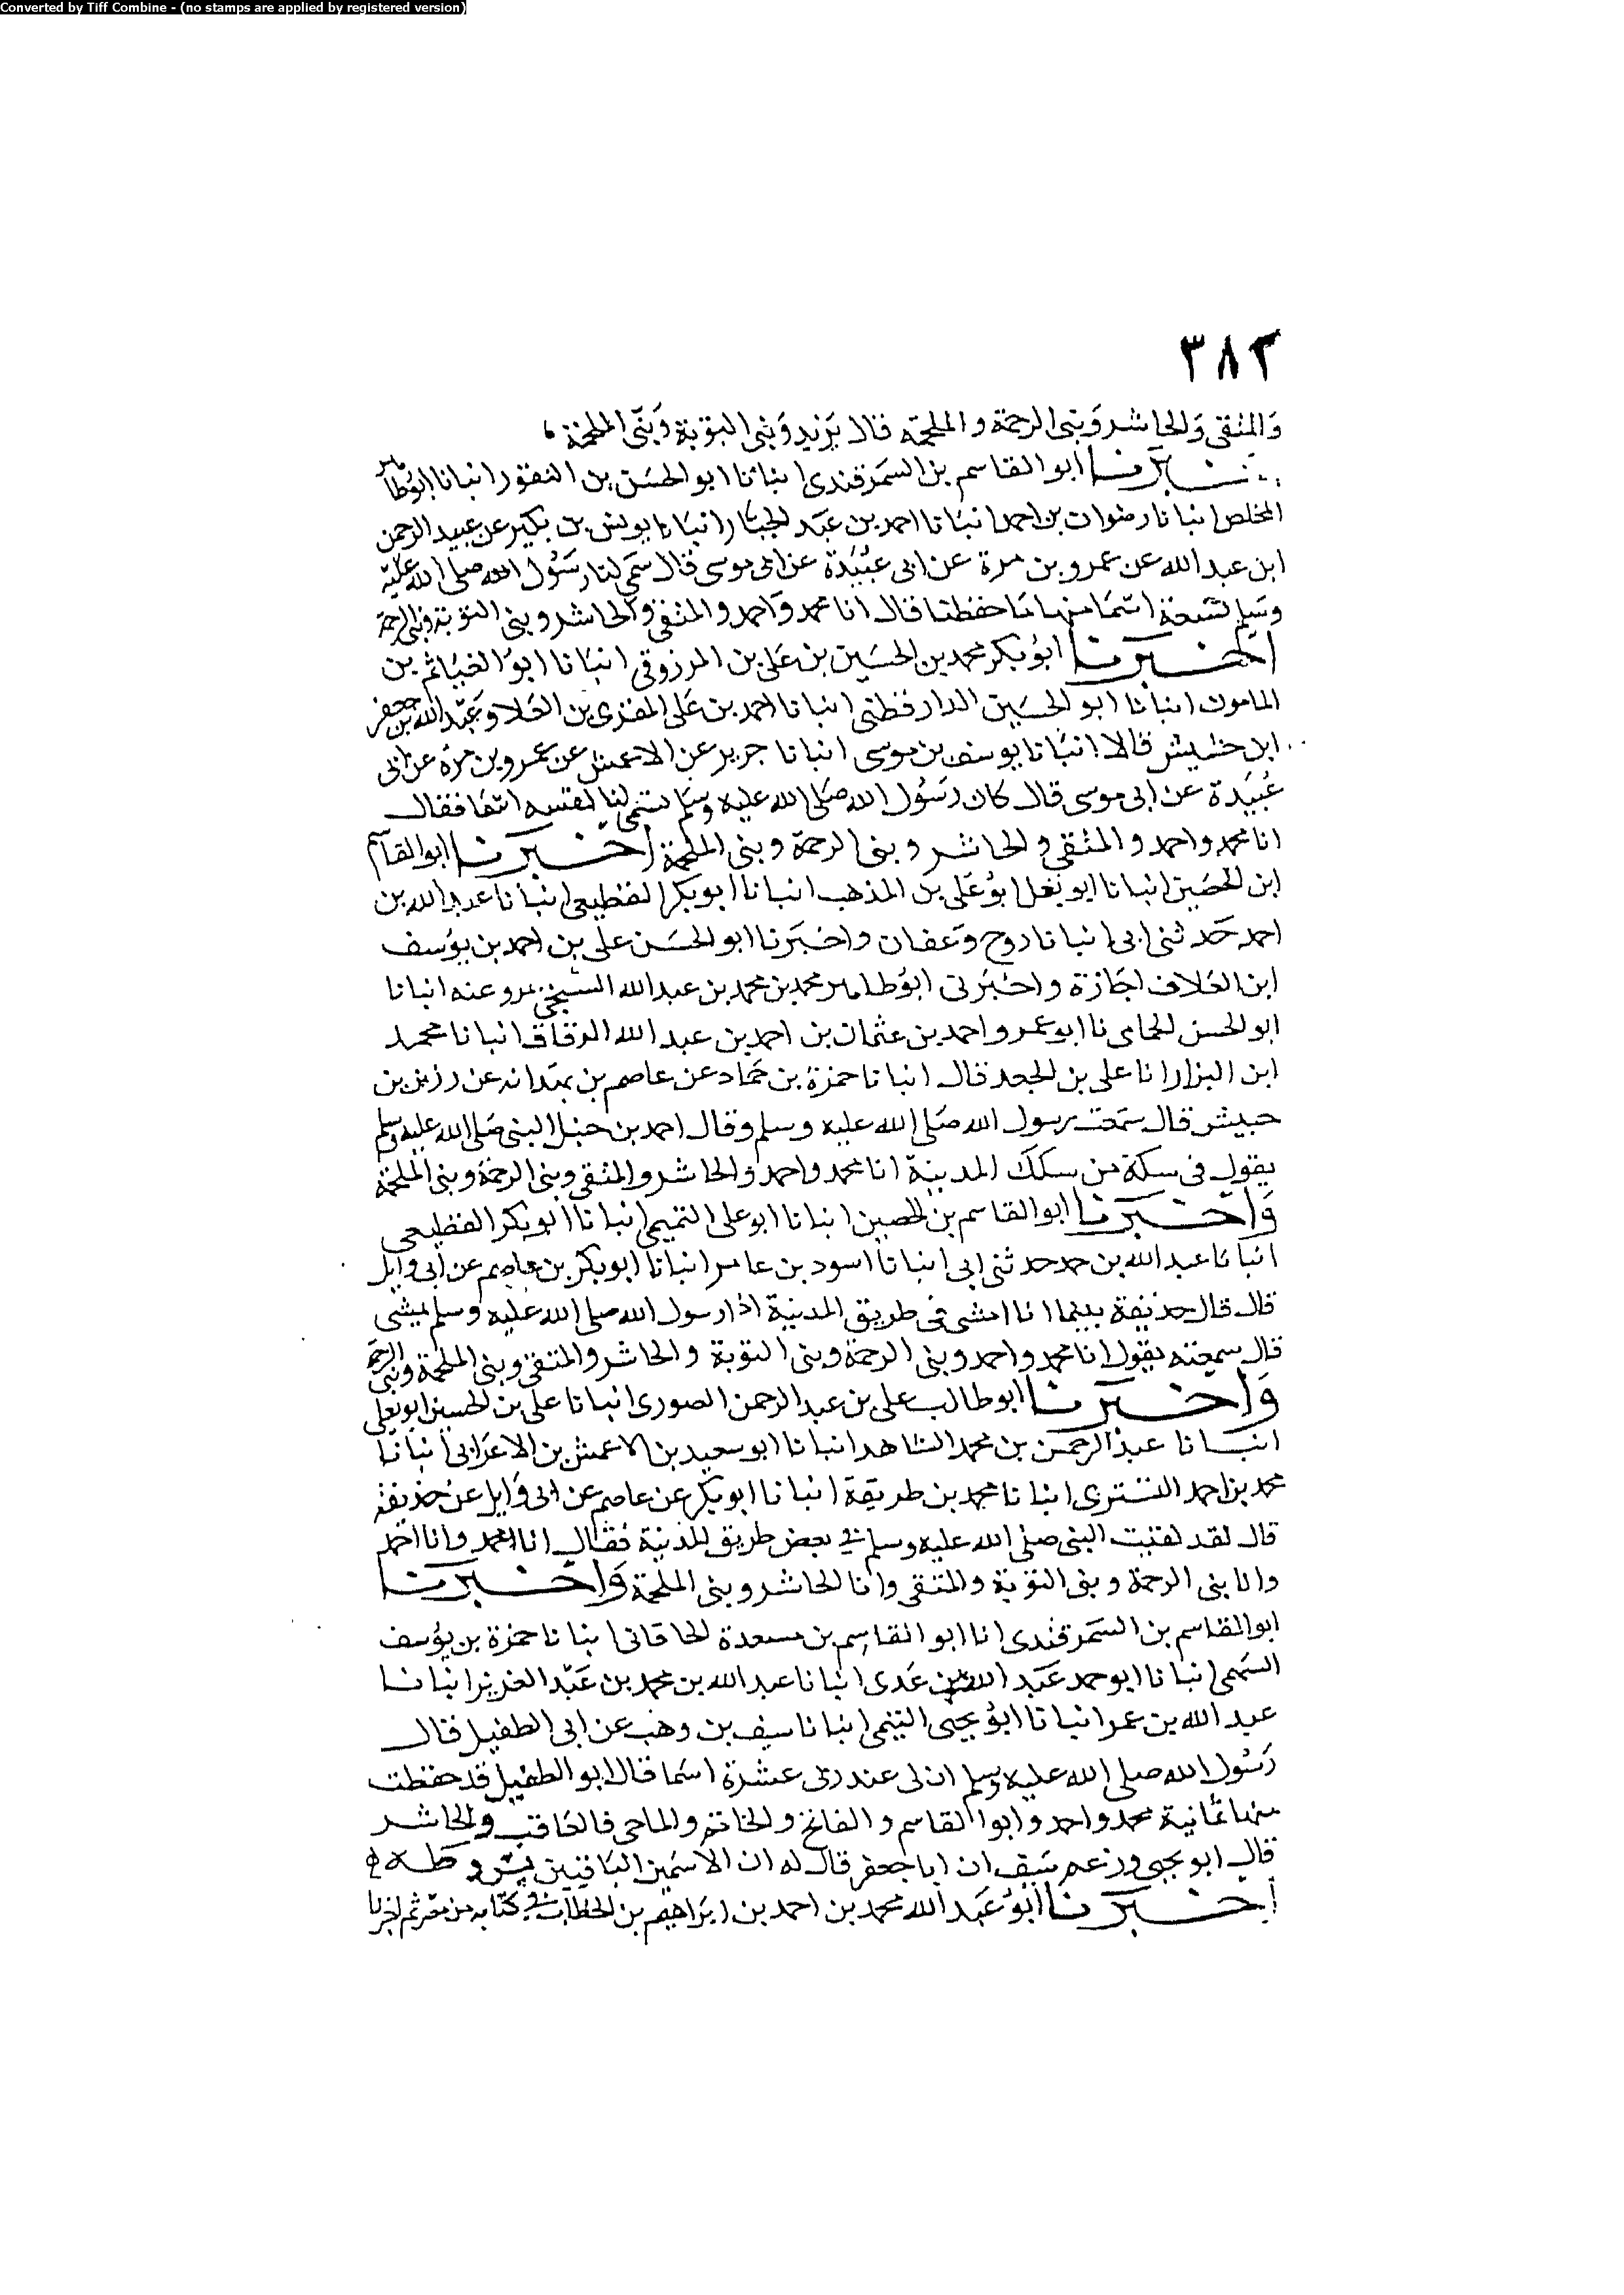 Converted by Tiff Combine - (no stamps are applied by registered version)
٣٨٣
والمقفى والحاشر ونبى الرحمة والملحمة قال يزيد ونبى التوبة ونبى الملحمة
ابو القاسم بن السمرقندى انبانا ابو الحسن بن النقور انبانا ابوطاهر
المخلص انبانا رضوان بن احمد انبانا احمد بن عبد الجبار انبانا يونس بن بكير عن عبيد الرحمن
ابن عبد الله عن عمرو بن مرة عن ابى عبيدة عن ابى موسى قال سمى لنا رسول الله صلى الله عليه
وسلم نفسه اسما منها ما حفظنا قال انا محمد واحمد والمقفى والحاشر ونبى التوبة ونبى الرحمة
اخبرنا ابو بكر محمد بن الحسين بن على بن المرزوقى انبانا ابو الغنائم بن
المامون انبانا ابو الحسين الدارقطنى انبانا احمد بن على المقرى بن العلا وعبد الله بن جعفر
ابن خشيش قالا انبانا يوسف بن موسى انبانا جرير عن الاعمش عن عمرو بن مرة عن ابى
عبيدة عن ابى موسى قال كان رسول الله صلى الله عليه وسلم يسمى لنا نفسه اسما فقال
انا محمد واحمد والمقفى والحاشر ونبى الرحمة ونبى الملحمة اخبرنا ابو القاسم
ابن الحصين انبانا ابو على بن المذهب انبانا ابو بكر القطيعى انبانا عبد الله بن
احمد حدثنى ابى انبانا روح وعفان واخبرنا ابو الحسن على بن احمد بن يوسف
ابن العلاف اجازة واخبرنى ابوطاهر محمد بن محمد بن عبد الله السنجى بمرو عنه انبانا
ابو الحسن الحمامى نا ابو عمرو احمد بن عثمان بن احمد بن عبد الله الدقاق انبانا محمد
ابن البزار انا على بن الجعد قال انبانا حمزة بن حماد عن عاصم بن بهدلة عن رزين بن
حبيش قال سمعت رسول الله صلى الله عليه وسلم وقال احمد بن حنبل النبى صلى الله عليه وسلم
يقول فى سكة من سكك المدينة انا محمد واحمد والحاشر والمقفى ونبى الرحمة ونبى الملحمة
واخبرنا ابو القاسم بن الحصين انبانا ابو على التميمى انبانا ابو بكر القطيعى
انبانا عبد الله بن حمد حدثنى ابى انبانا اسود بن عامر انبانا ابو بكر بن عاصم عن ابى وايل
قال قال حذيفة بينما انا امشى فى طريق المدينة اذا رسول الله صلى الله عليه وسلم يمشى
قال سمعته يقول انا محمد واحمد ونبى الرحمة ونبى التوبة والحاشر والمقفى ونبى الملحمة ونبى الرحمة
واخبرنا ابوطالب على بن عبد الرحمن الصورى انبانا على بن الحسين ابو يعلى
انبانا عبد الرحمن بن محمد الشاهد انبانا ابو سعيد بن الاعمش بن الاعرابى انبانا
محمد بن احمد التسترى انبانا محمد بن طريقة انبانا ابو بكر عن عاصم عن ابى وايل عن حذيفة
قال لقد لقيت النبى صلى الله عليه وسلم فى بعض طريق المدينة فقال انا محمد وانا احمد
وانا نبى الرحمة ونبى التوبة والمقفى وانا الحاشر ونبى الملحمة واخبرنا
ابو القاسم بن السمرقندى انا ابو القاسم بن مسعدة الخاقانى انبانا حمزة بن يوسف
السهمى انبانا ابو حمد عبد الله بن عدى انبانا عبد الله بن محمد بن عبد العزيز انبانا
عبد الله بن عمر انبانا ابو يحيى التيمى انبانا سيف بن وهب عن ابى الطفيل قال
رسول الله صلى الله عليه وسلم ان لى عند ربى عشرة اسما قال ابو الطفيل قد حفظت
منها ثمانية محمد واحمد وابو القاسم والفاتح والخاتم والماحى فالعاقب والحاشر
قال ابو يحيى وزعم سيف ان ابا جعفر قال له ان الاسمين الباقيين يس وطه
اخبرنا ابو عبد الله محمد بن احمد بن ابراهيم بن الخطاب فى كتابه من مصر ثم اخبرنا